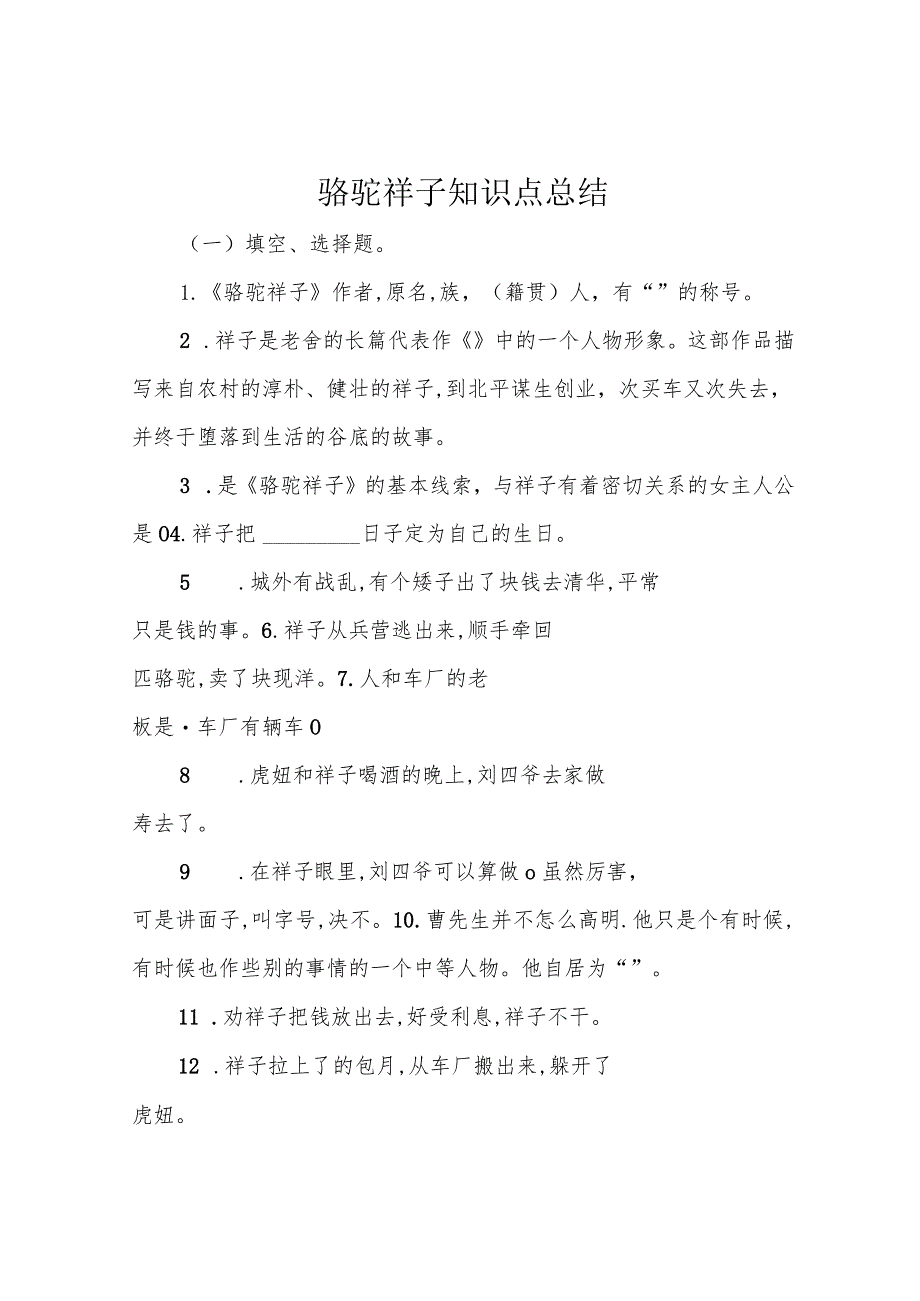 骆驼祥子知识点总结
（一）填空、选择题。
1.《骆驼祥子》作者,原名,族，（籍贯）人，有“”的称号。
2 .祥子是老舍的长篇代表作《》中的一个人物形象。这部作品描
写来自农村的淳朴、健壮的祥子,到北平谋生创业，次买车又次失去，
并终于堕落到生活的谷底的故事。
3 .是《骆驼祥子》的基本线索，与祥子有着密切关系的女主人公
是04.祥子把 _________日子定为自己的生日。
5 .城外有战乱,有个矮子出了块钱去清华,平常
只是钱的事。6.祥子从兵营逃出来,顺手牵回
匹骆驼,卖了块现洋。7.人和车厂的老
板是·车厂有辆车0
8 .虎妞和祥子喝酒的晚上,刘四爷去家做
寿去了。
9 .在祥子眼里,刘四爷可以算做o虽然厉害，
可是讲面子,叫字号,决不。10.曹先生并不怎么高明.他只是个有时候,
有时候也作些别的事情的一个中等人物。他自居为“”。
11 .劝祥子把钱放出去,好受利息,祥子不干。
12 .祥子拉上了的包月,从车厂搬出来,躲开了
虎妞。